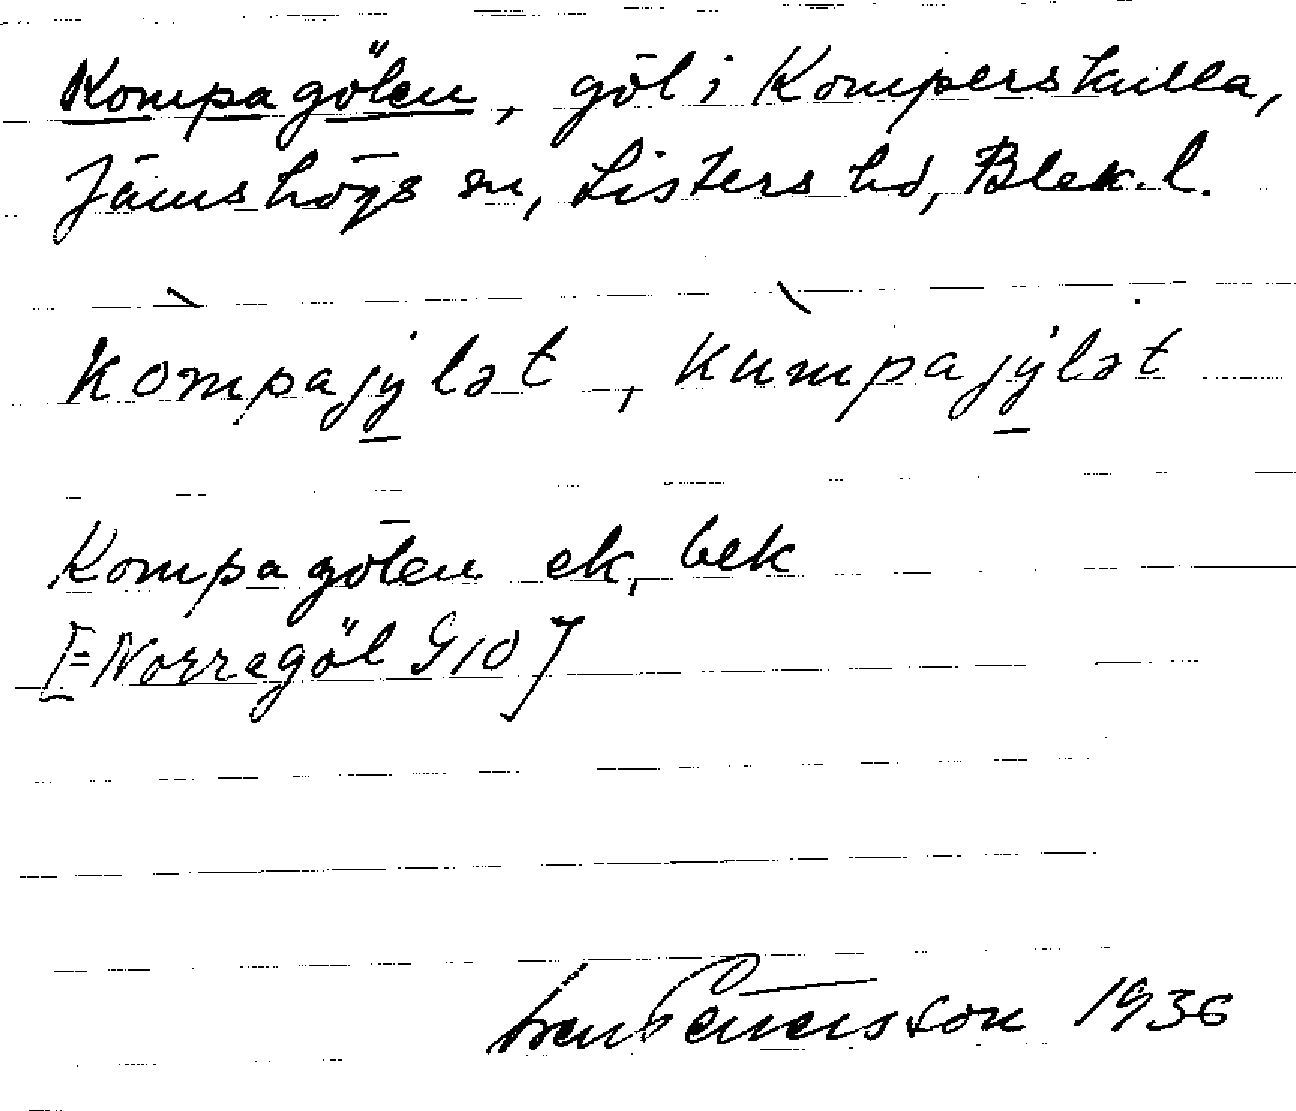 Kompagölen, göl i Komperskulla,
Jämshögs sn, Listers hd, Blek. l.
kòmpajy̱lət, kùmpajy̱lət
Kompagölen ek, bek
[=Norregöl G10]
1936